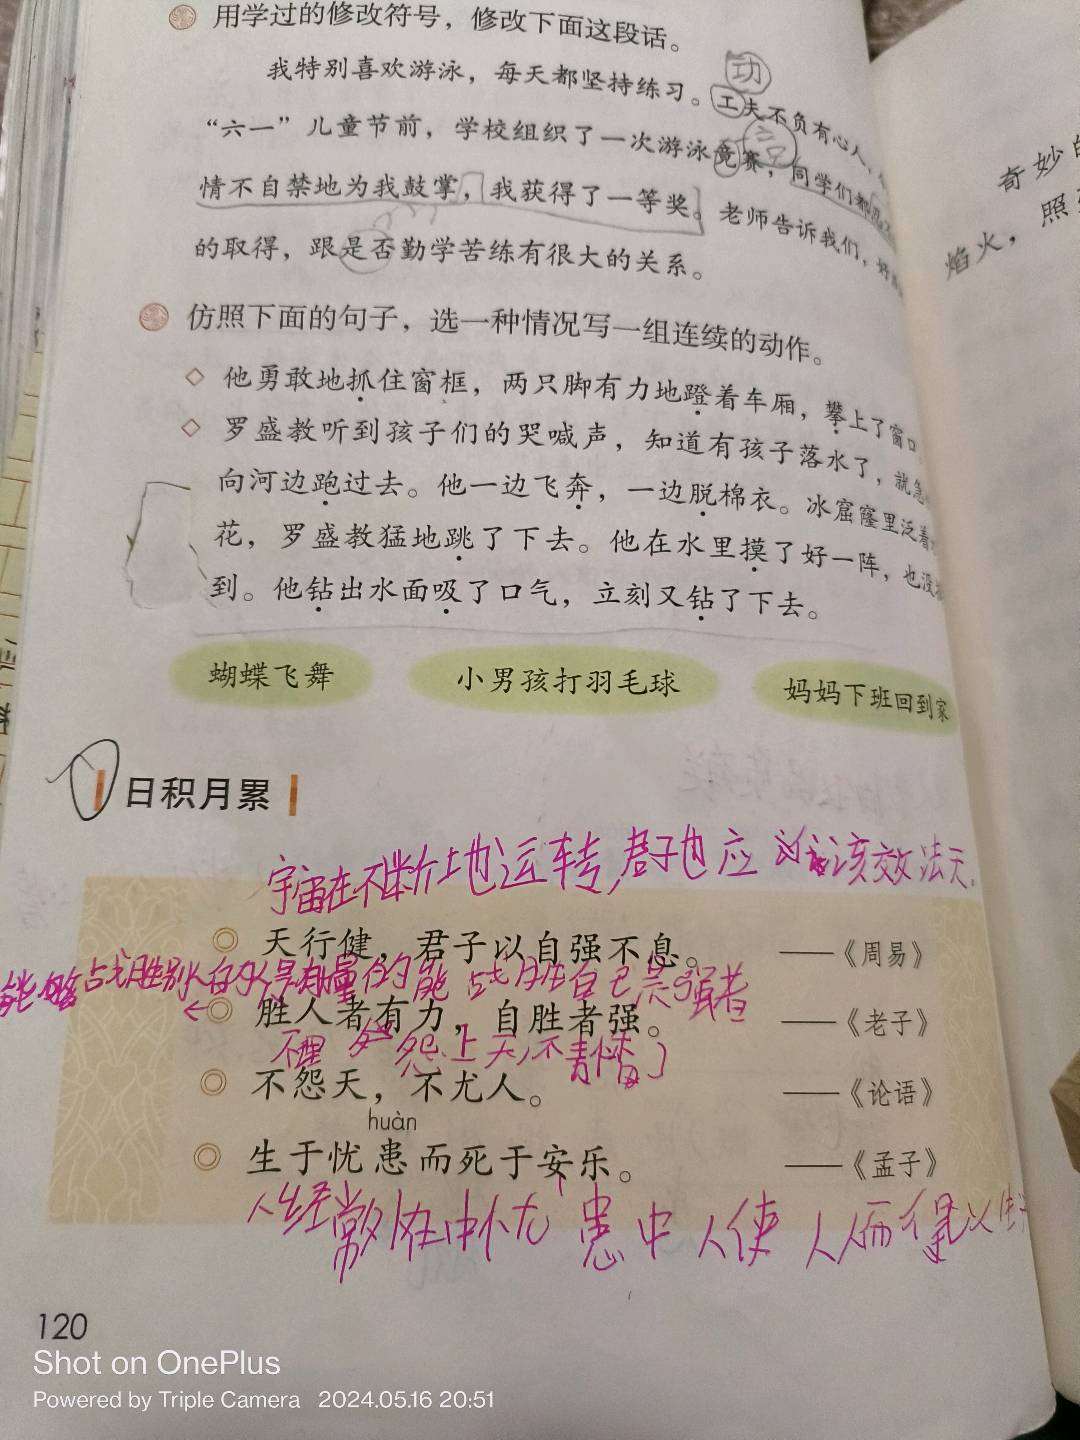 用学过的修改符号，修改下面这段话。
我特别喜欢游泳，每天都坚持练习。工夫不负有心人，
功
“六一”儿童节前，学校组织了一次游泳竟赛，同学们都
情不自禁地为我鼓掌，我获得了一等奖。老师告诉我们，好
的取得，跟是否勤学苦练有很大的关系。
仿照下面的句子，选一种情况写一组连续的动作。
他勇敢地抓住窗框，两只脚有力地蹬着车厢，攀上了窗口
罗盛教听到孩子们的哭喊声，知道有孩子落水了，就急
向河边跑过去。他一边飞奔，一边脱棉衣。冰窟窿里泛着
花，罗盛教猛地跳了下去。他在水里摸了好一阵，也没
到。他钻出水面吸了口气，立刻又钻了下去。
蝴蝶飞舞 小男孩打羽毛球 妈妈下班回到家
日积月累
宇宙在不断地运转，君子也应该效法天。
天行健，君子以自强不息。 ——《周易》
能够战胜别人的人是有力量的能战胜自己是强者
胜人者有力，自胜者强。 ——《老子》
不埋怨上天，不责备
不怨天，不尤人。 ——《论语》
huàn
生于忧患而死于安乐。 ——《孟子》
人经常处在忧患中人使人人而得以生
120
Shot on OnePlus
Powered by Triple Camera 2024.05.16 20:51
奇妙
照
焰火，